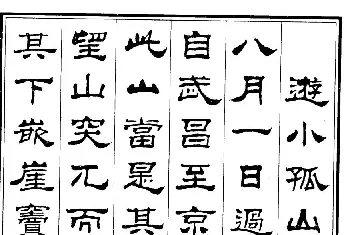 遊小孤山
八月一日過
自武昌至京
此山當是其
望山突兀而
其下嵌崖竇